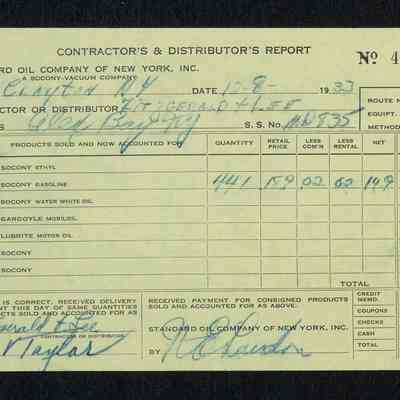 CONTRACTOR'S & DISTRIBUTOR'S REPORT
Nº 4
RD OIL COMPANY OF NEW YORK, INC.
A SOCONY-VACUUM COMPANY
Clayton NY DATE 12-8- 1933
CTOR OR DISTRIBUTOR FITZGERALD & LEE
Alex Bay NY S. S. No.
ROUTE N
EQUIP.
METHOD
PRODUCTS SOLD AND NOW ACCOUNTED FOR QUANTITY RETAIL PRICE LESS COM'N LESS RENTAL NET
SOCONY ETHYL
SOCONY GASOLINE 441 159 .02 .02 149
SOCONY WATER WHITE OIL
GARGOYLE MOBILOIL
LUBRITE MOTOR OIL
SOCONY
SOCONY
TOTAL
IS CORRECT, RECEIVED DELIVERY
T THIS DAY OF SAME QUANTITIES
UCTS SOLD AND ACCOUNTED FOR AS
gerald & Lee
CONTRACTOR OR DISTRIBUTOR
Taylor
RECEIVED PAYMENT FOR CONSIGNED PRODUCTS
SOLD AND ACCOUNTED FOR AS ABOVE.
STANDARD OIL COMPANY OF NEW YORK, INC.
BY
CREDIT MEMO.
COUPONS
CHECKS
CASH
TOTAL